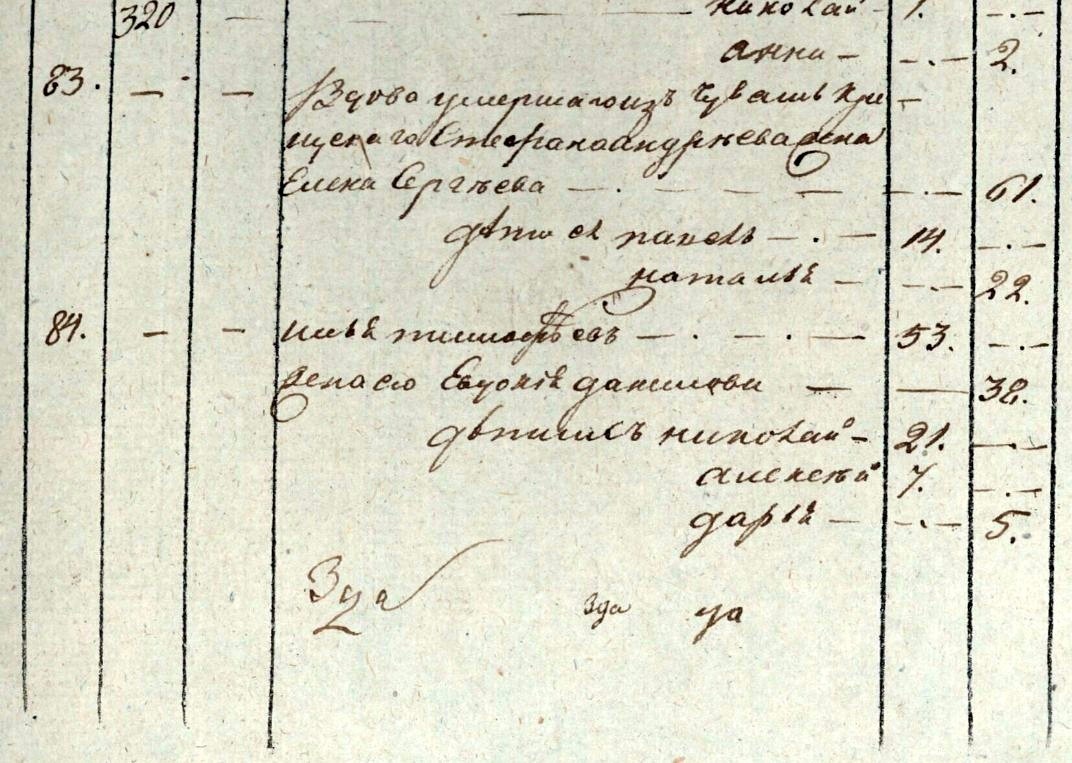 320 — — — Николай 1. —.—
Анна — —.— 2.
83. — — Вдова умершаго изъ Чувашъ Кре
щенаго Стефана Андрѣева жена
Елена Сергѣева —.— — — —.— 61.
дѣти ея Павелъ —.— 14. —.—
Наталья — —.— 22.
84. — — Илья Тимофѣевъ —.—.— 53. —.—
жена ево Евдокія Данилова — — 38.
дѣти ихъ Николай — 21. —.—
Алексѣй 7. —.—
Дарья — —.— 5.